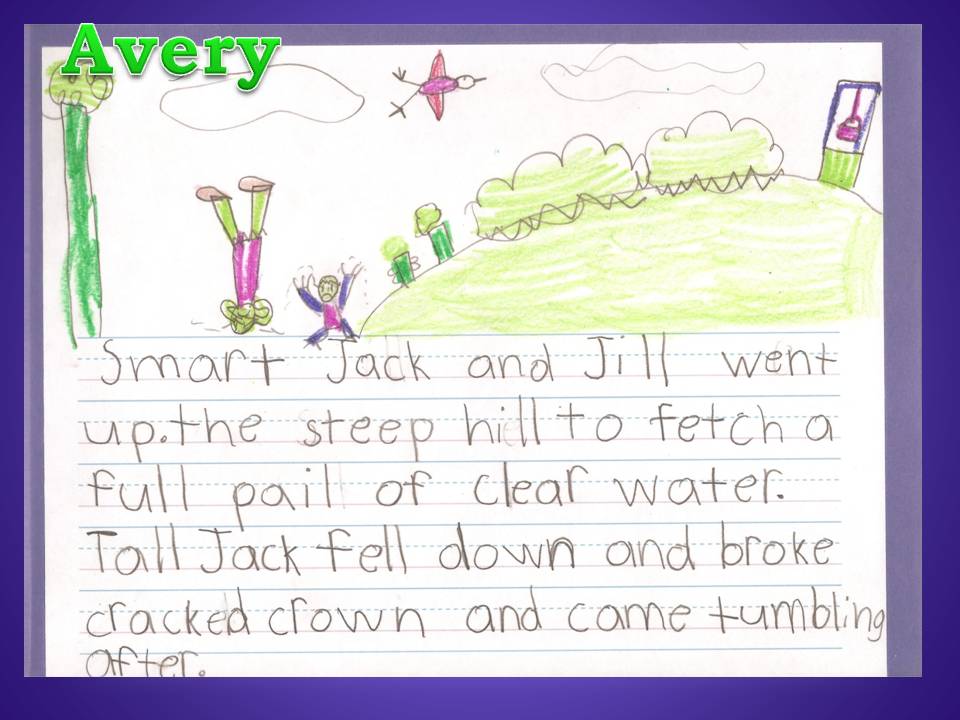 Avery
Smart Jack and Jill went
up.the steep hill to fetch a
full pail of clear water.
Tall Jack fell down and broke
cracked crown and came tumbling
after.